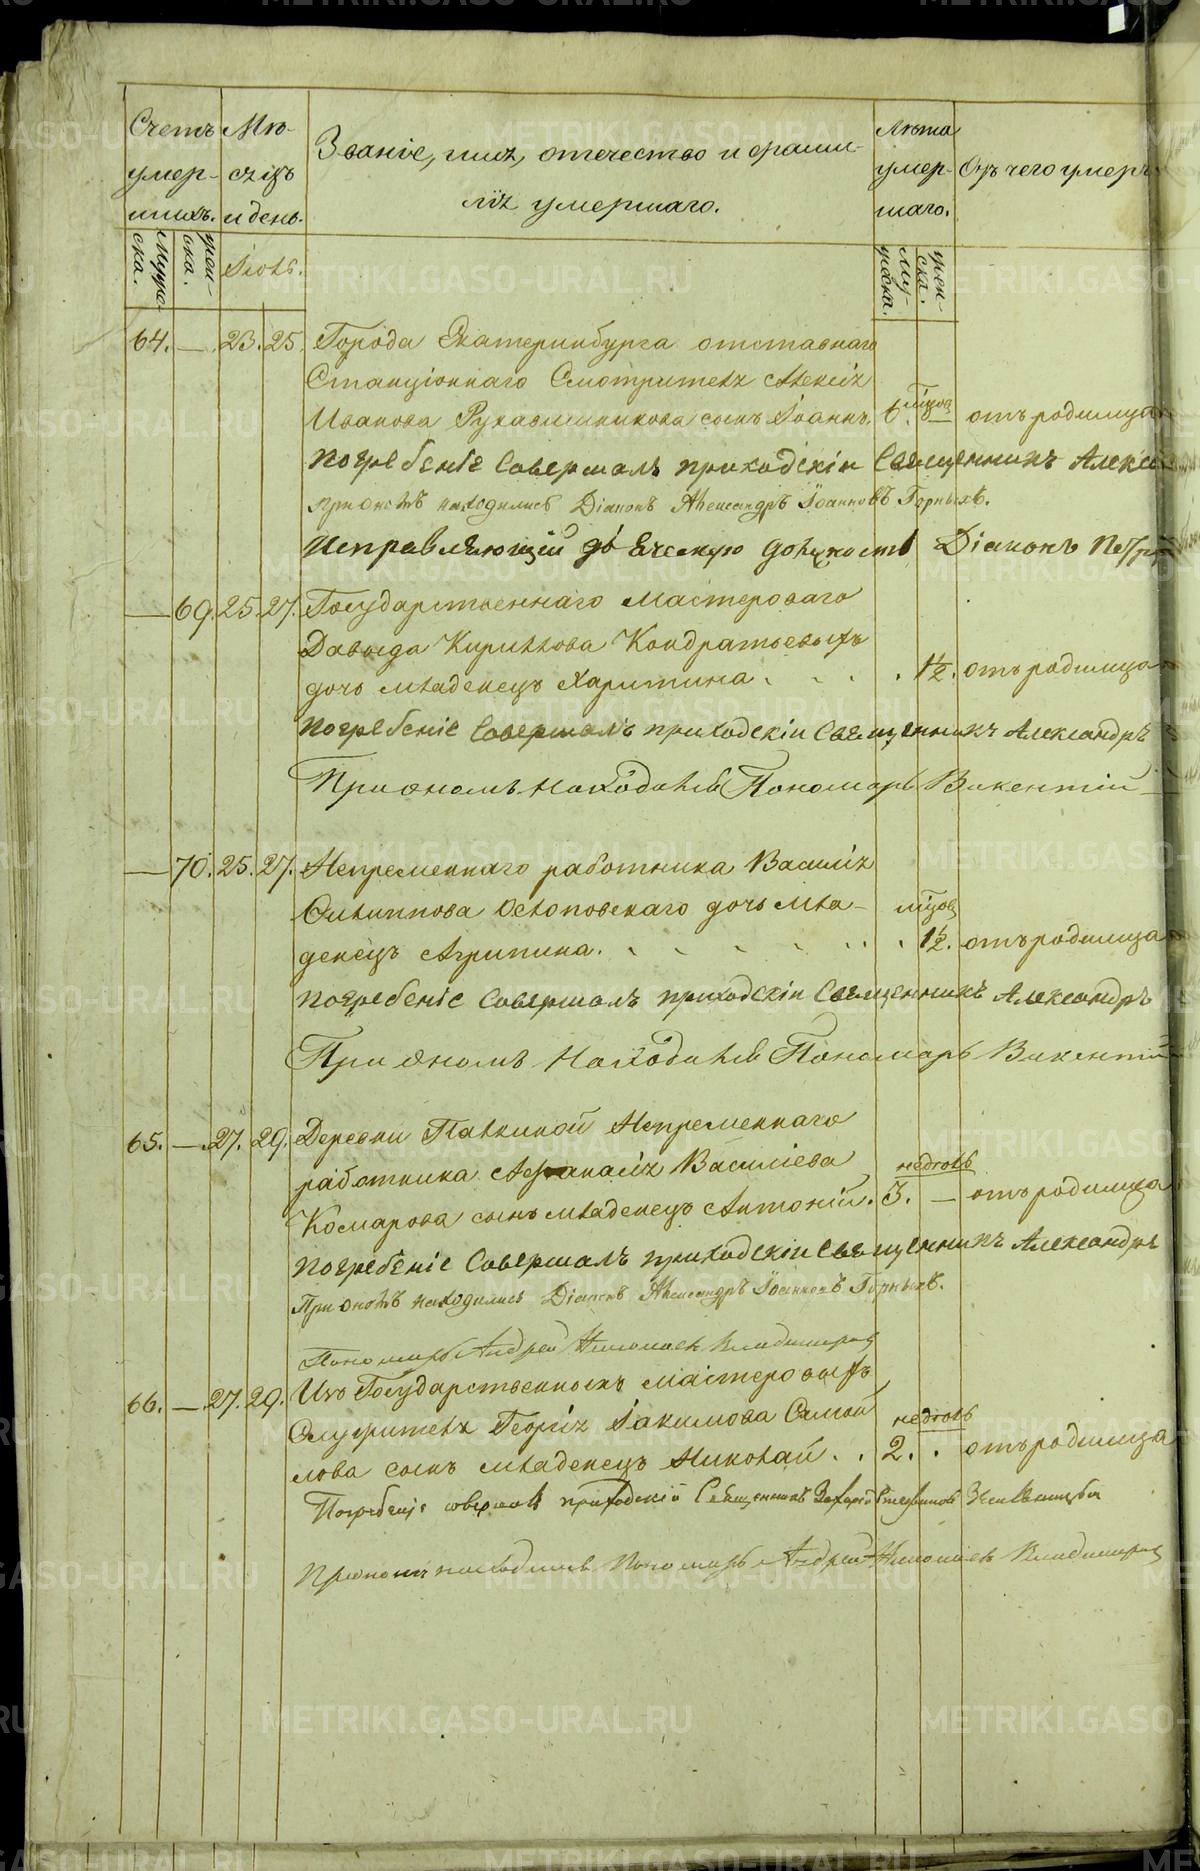 Счетъ умер-шихъ.
Мѣ-сяцъ и день.
Званіе, имя, отечество и фами-
лія умершаго.
Лѣта умер-шаго.
Отъ чего умеръ
Мужес-ка.
жен-ска.
Іюль.
му-жеска.
жен-ска.
64. — 23. 25. Города Екатеринбурга отставнаго
Станціоннаго Смотрителя Алексія
мѣсяц
Иванова Рукавишникова сынъ Іоаннъ. 6. — отъ родимца
Погребеніе Совершалъ приходскій Священникъ Алекса
При ономъ находились Діаконъ Александръ Іоанновъ Горныхъ.
Исправляющій дьяческую должность Діаконъ Петръ
— 69. 25. 27. Государственнаго Мастероваго
Давыда Кирилова Кондратьевыхъ
дочь младенецъ Харитина . . . . 1½. отъ родимца
Погребеніе Совершалъ приходскіи Священникъ Александръ
При ономъ находился Пономарь Викентій
— 70. 25. 27. Непременнаго работника Василія
Филиппова Ослоповскаго дочь мла- мѣсяц
денецъ Агрипина. . . . . . . 1½. отъ родимца
Погребеніе Совершалъ приходскіи Священникъ Александръ
При ономъ Находился Пономарь Викентій
65. — 27. 29. Деревни Палкиной Непременнаго
работника Афанасія Василіева недѣль
Комарова сынъ младенецъ Антоній. 3. — отъ родимца
Погребеніе Совершалъ приходскіи Священникъ Александръ
При ономъ находились Діаконъ Александръ Іоанновъ Горныхъ.
Пономарь Андрей Николаевъ Владимиров
66. — 27. 29. Изъ Государственныхъ мастеровыхъ
Служителя Георгія Іакимова Самой недѣль
лова сынъ младенецъ Николай . . 2. . отъ родимца
Погребеніе совершалъ приходскій Священникъ Захарій Стефановъ
При ономъ находился Пономарь Андрей Николаевъ Владимиров
METRIKI.GASO-URAL.RU